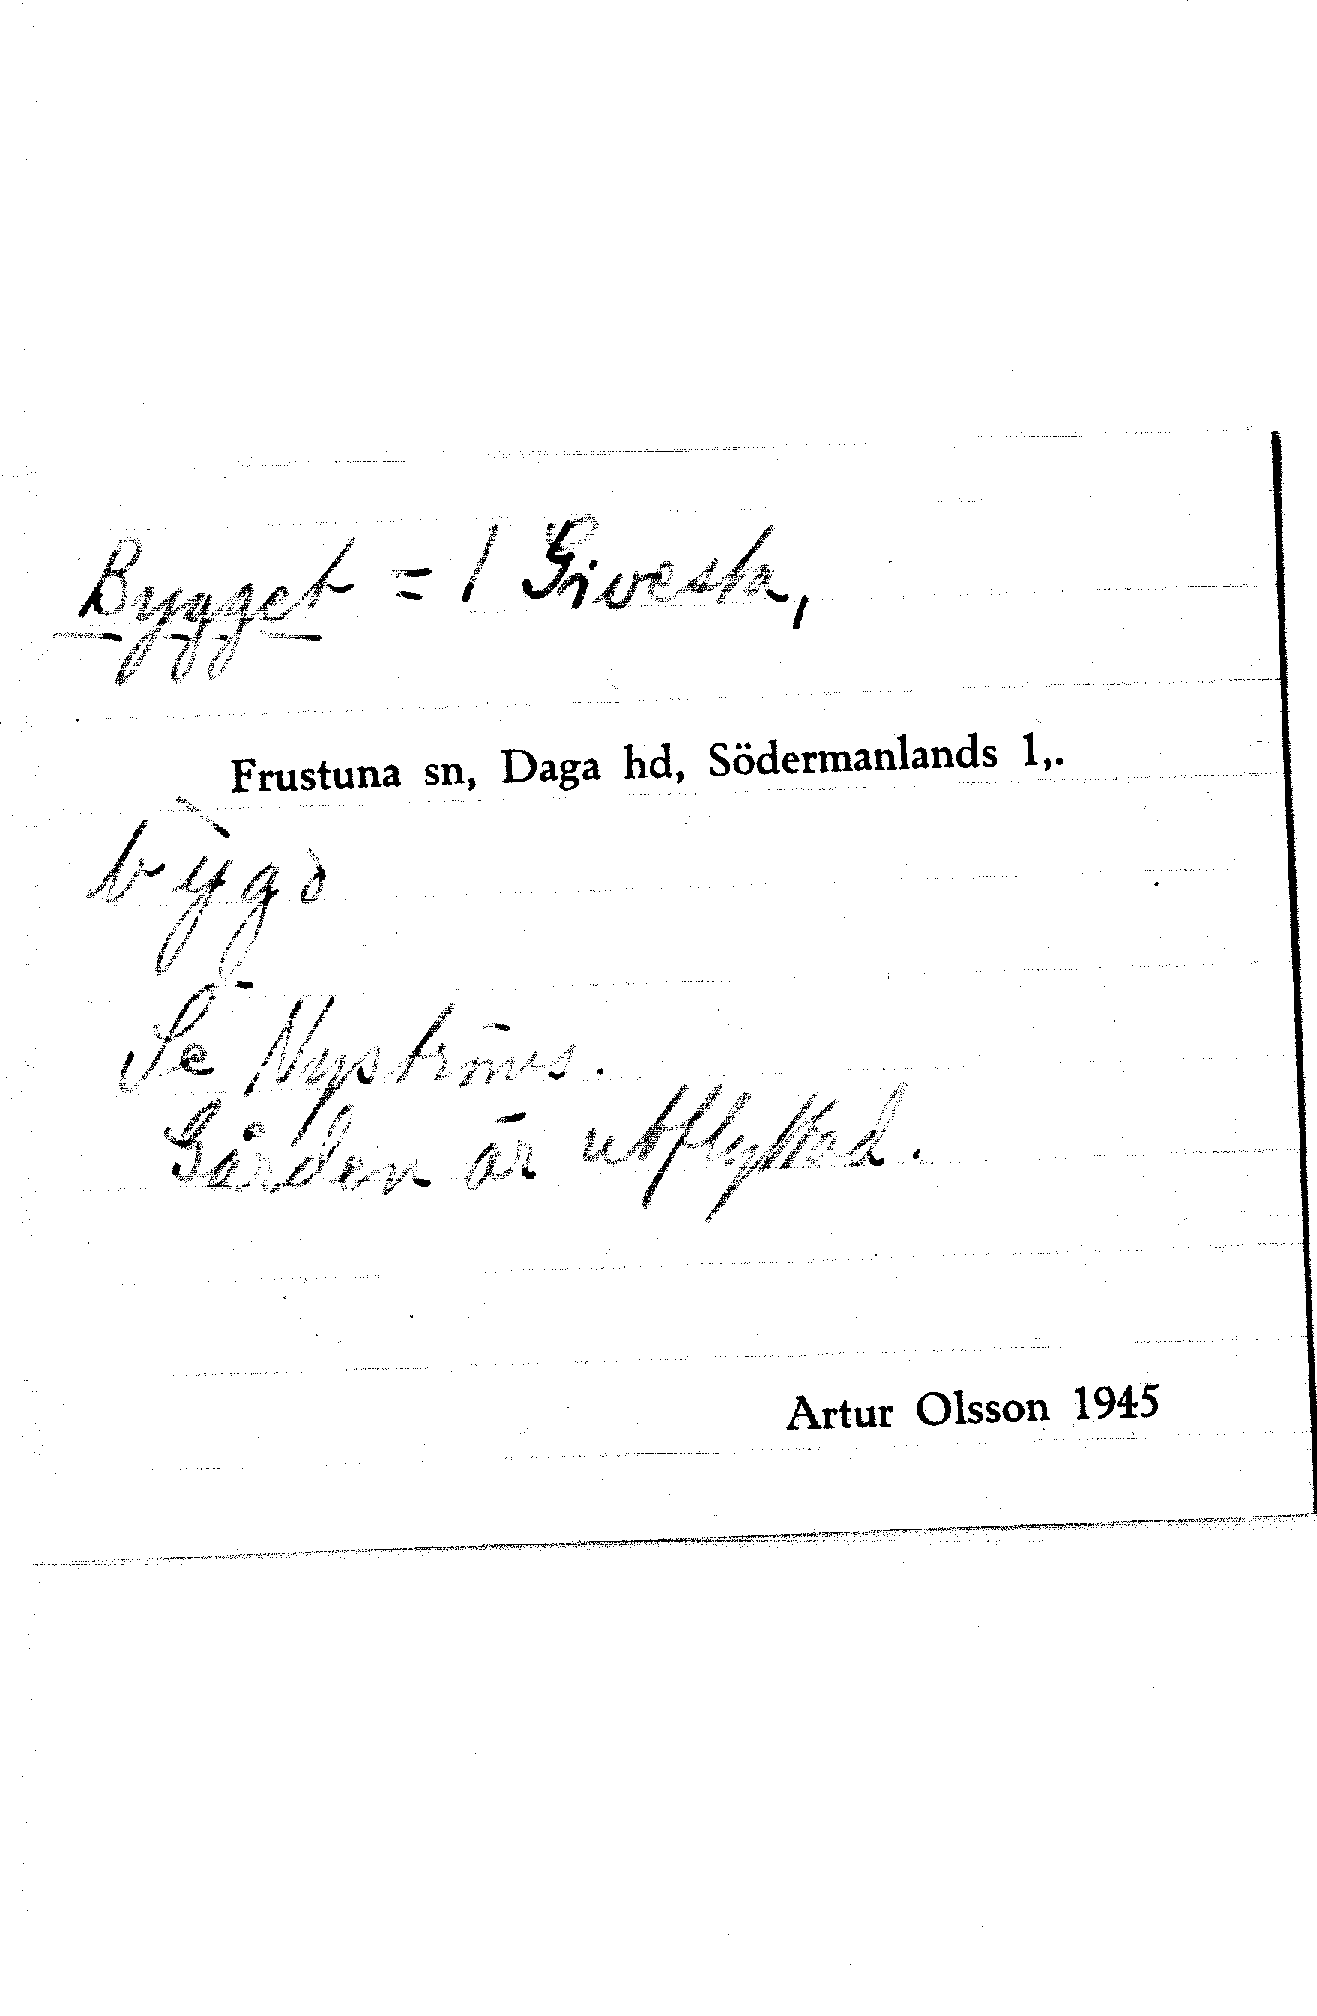 Bygget = 1 Givesta,
Frustuna sn, Daga hd, Södermanlands l,.
Se Nyströms.
Gården är utflyttad.
Artur Olsson 1945